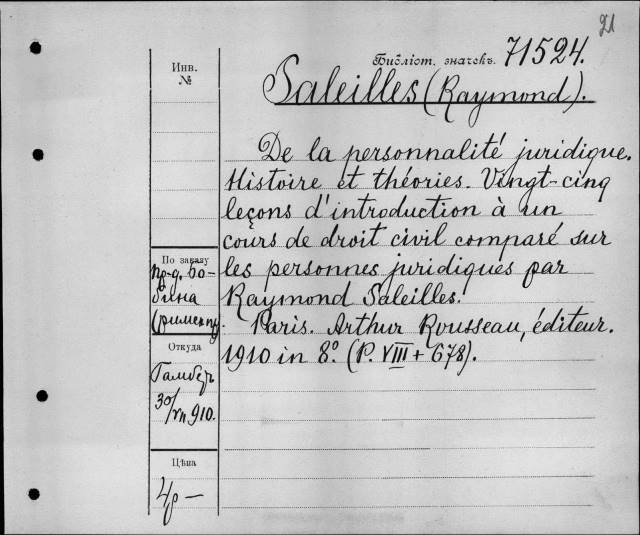 21
Инв.
№
Библіот. значекъ. 71524.
Saleilles (Raymond).
De la personnalité juridique.
Histoire et théories. Vingt-cinq
leçons d'introduction à un
cours de droit civil comparé sur
les personnes juridiques par
Raymond Saleilles.
Paris. Arthur Rousseau, éditeur.
1910 in 8º. (P. VIII + 678).
По заказу
пр-д. Бо-
бина
Откуда
Гамберъ
30/VII 910.
Цѣна
4р —